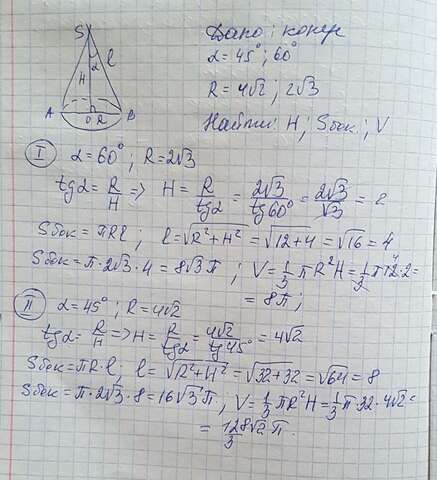 Дано: конус
α = 45°; 60°
R = 4√2; 2√3
Найти: H; Sбок; V
S
α
l
H
A
O
R
B
I α = 60°; R = 2√3
tgα = R/H => H = R/tgα = 2√3/tg60° = 2√3/√3 = 2
Sбок = πRl; l = √(R²+H²) = √(12+4) = √16 = 4
Sбок = π·2√3·4 = 8√3π; V = 1/3 πR²H = 1/3 π12·2 =
= 8π;
II α = 45°; R = 4√2
tgα = R/H => H = R/tgα = 4√2/tg45° = 4√2
Sбок = πR·l; l = √(R²+H²) = √(32+32) = √64 = 8
Sбок = π·2√3·8 = 16√3π; V = 1/3 πR²H = 1/3 π·32·4√2 =
= 128√2/3 π.